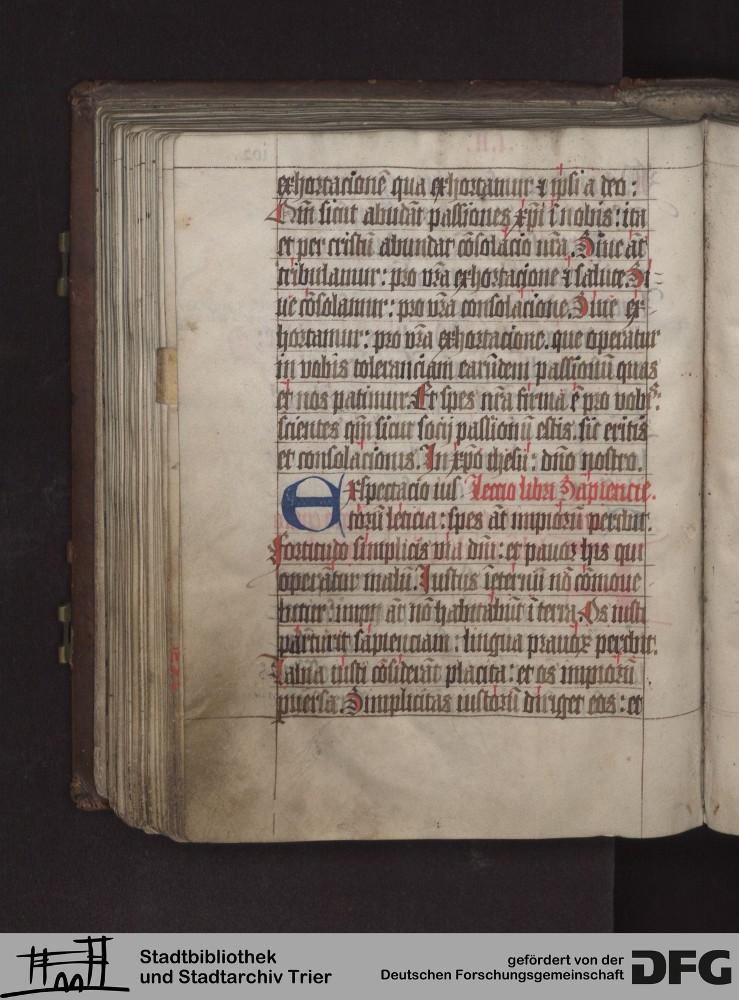 exhortacionē qua exhortamur ⁊ ipsi a deo:
Qm̄ sicut abūdāt passiones xp̄i ī nobis: ita
et per cristū abundat cōsolacio nr̄a. Siue āt
tribulamur: pro vr̄a exhortacione ⁊ salute. Si-
ue cōsolamur: pro vr̄a consolacione. Siue ex-
hortamur: pro vr̄a exhortacione. que operatur
in vobis toleranciam earūdem passionū quas
et nos patimur. Et spes nr̄a firma ē pro vobis:
scientes qm̄ sicut socij passionū estis. sic eritis
et consolacionis. In xp̄o ihesū: dn̄o nostro.
Exspectacio ius Lectio libri Sapiencie.
torū leticia: spes āt impiorū peribit.
Fortitudo simplicis via dn̄i: et pauor his qui
operātur malū. Iustus ī eternū nō cōmoue
bitur: impij āt nō habitabūt ī terra. Os iusti
parturit sapienciam: lingua prauoꝝ peribit.
Labia iusti cōsiderāt placita: et os impiorū
puersa. Simplicitas iustorū diriget eos: et
Stadtbibliothek
und Stadtarchiv Trier
gefördert von der
Deutschen Forschungsgemeinschaft
DFG